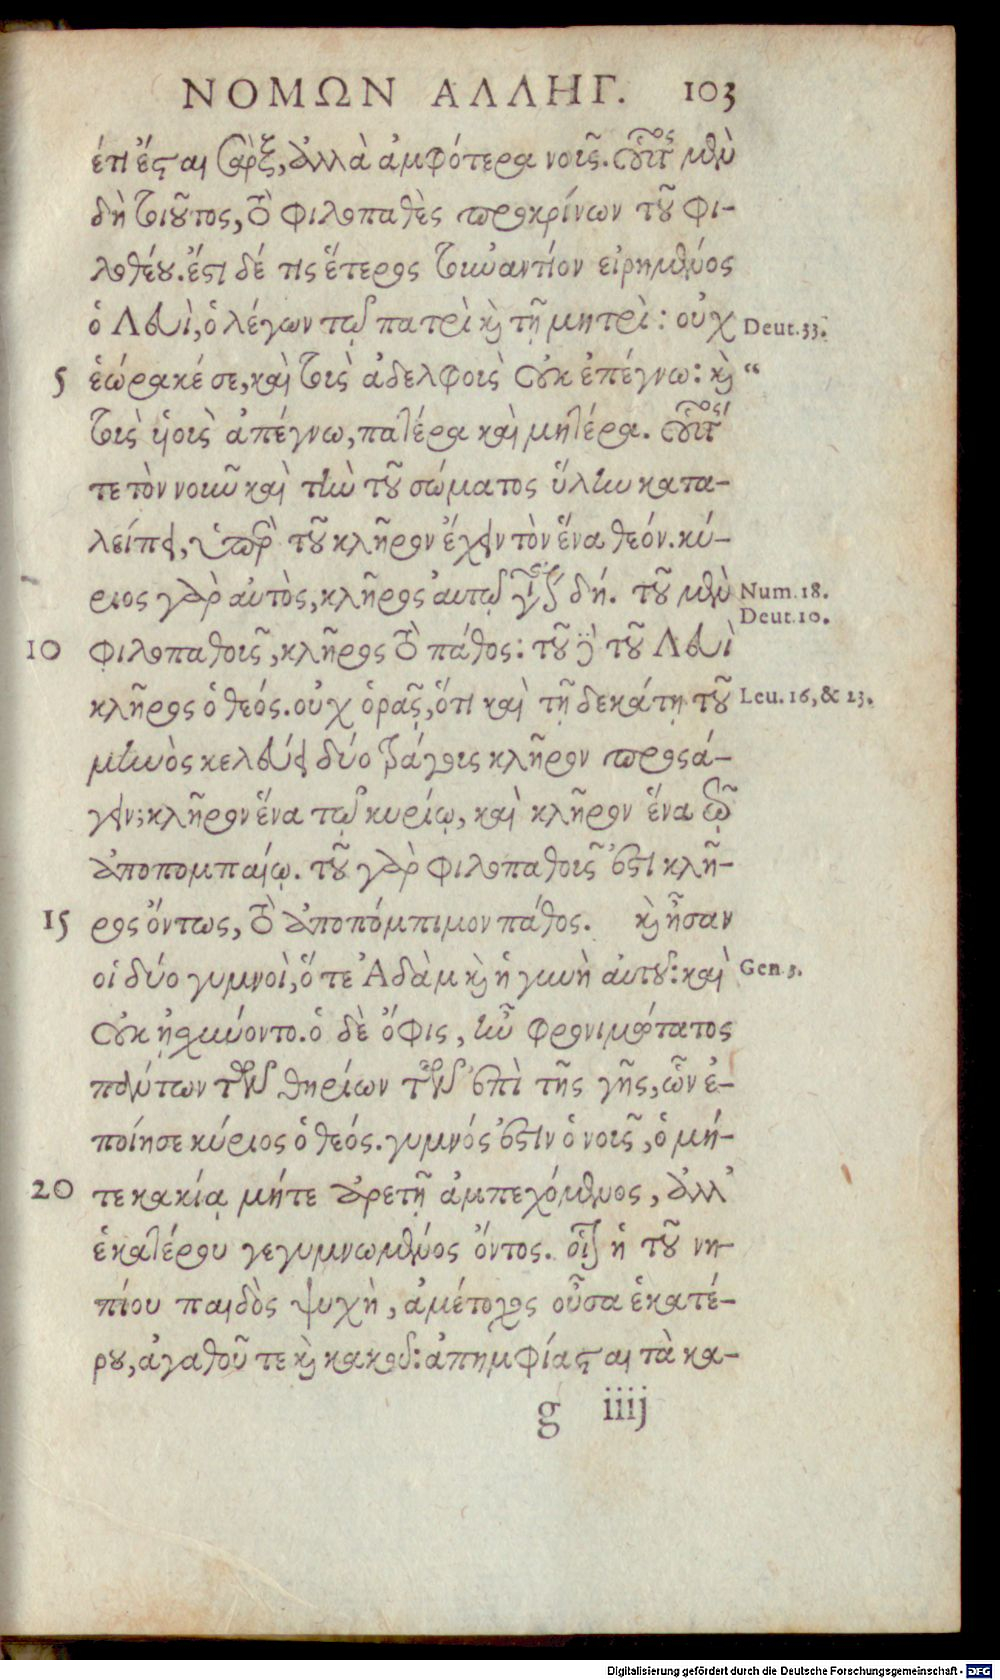 ΝΟΜΩΝ ΑΛΛΗΓ. 103
ἐτι ἔσται σὰρξ, ἀλλὰ ἀμφότερα νοῦς. οὗτος μὲν
δὴ τοιοῦτος, ὁ φιλοπαθὲς προκρίνων τοῦ φι-
λοθέου. ἔστι δέ τις ἕτερος τοὐναντίον εἰρημένος
ὁ Λευὶ, ὁ λέγων τῷ πατρὶ καὶ τῇ μητρὶ: οὐχ Deut. 33.
5 ἑώρακέ σε, καὶ τοὺς ἀδελφοὺς οὐκ ἐπέγνω: καὶ “
τοὺς υἱοὺς ἀπέγνω, πατέρα καὶ μητέρα. οὗτός
τε τὸν νοῦν καὶ τὴν τοῦ σώματος ὕλην κατα-
λείπει, ὑπὲρ τοῦ κλῆρον ἔχειν τὸν ἕνα θεόν. κύ-
ριος γὰρ αὐτὸς, κλῆρος αὐτῷ γίνεται δή. τοῦ μὲν Num. 18.
Deut. 10.
10 φιλοπαθοῦς, κλῆρος τὸ πάθος: τοῦ δὲ τοῦ Λευὶ
κλῆρος ὁ θεός. οὐχ ὁρᾷς, ὅτι καὶ τῇ δεκάτῃ τοῦ Leu. 16, & 23.
μηνὸς κελεύει δύο τράγους κλῆρον προσά-
γειν; κλῆρον ἕνα τῷ κυρίῳ, καὶ κλῆρον ἕνα τῷ
ἀποπομπαίῳ. τοῦ γὰρ φιλοπαθοῦς ἐστι κλῆ-
15 ρος ὄντως, τὸ ἀποπόμπιμον πάθος. καὶ ἦσαν
οἱ δύο γυμνοὶ, ὅ τε Ἀδὰμ καὶ ἡ γυνὴ αὐτοῦ: καὶ Gen. 3.
οὐκ ᾐσχύνοντο. ὁ δὲ ὄφις, ἦν φρονιμώτατος
πάντων τῶν θηρίων τῶν ἐπὶ τῆς γῆς, ὧν ἐ-
ποίησε κύριος ὁ θεός. γυμνός ἐστιν ὁ νοῦς, ὁ μή-
20 τε κακίᾳ μήτε ἀρετῇ ἀμπεχόμενος, ἀλλ’
ἑκατέρου γεγυμνωμένος ὄντος. οἷον ἡ τοῦ νη-
πίου παιδὸς ψυχὴ, ἀμέτοχος οὖσα ἑκατέ-
ρου, ἀγαθοῦ τε καὶ κακοῦ: ἀπημφίασται τὰ κα-
g iiij
Digitalisierung gefördert durch die Deutsche Forschungsgemeinschaft - DFG